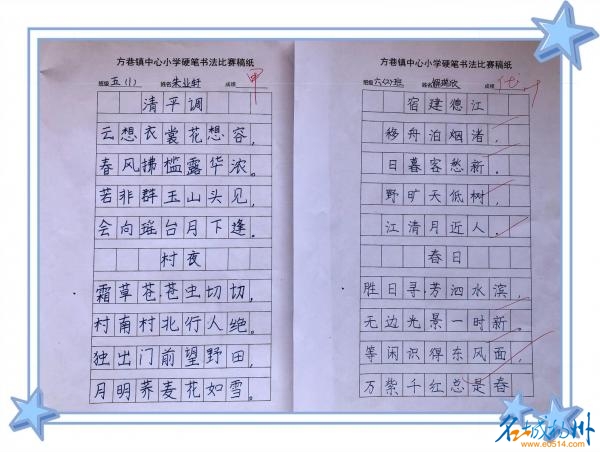 方巷镇中心小学硬笔书法比赛稿纸
班级 五(1) 姓名 朱业轩 成绩 甲
清平调
云想衣裳花想容，
春风拂槛露华浓。
若非群玉山头见，
会向瑶台月下逢。
村夜
霜草苍苍虫切切，
村南村北行人绝。
独出门前望野田，
月明荞麦花如雪。
方巷镇中心小学硬笔书法比赛稿纸
班级 六(2)班 姓名 解琪欣 成绩 优
宿建德江
移舟泊烟渚，
日暮客愁新。
野旷天低树，
江清月近人。
春日
胜日寻芳泗水滨，
无边光景一时新。
等闲识得东风面，
万紫千红总是春
名城扬州
www.e0514.com